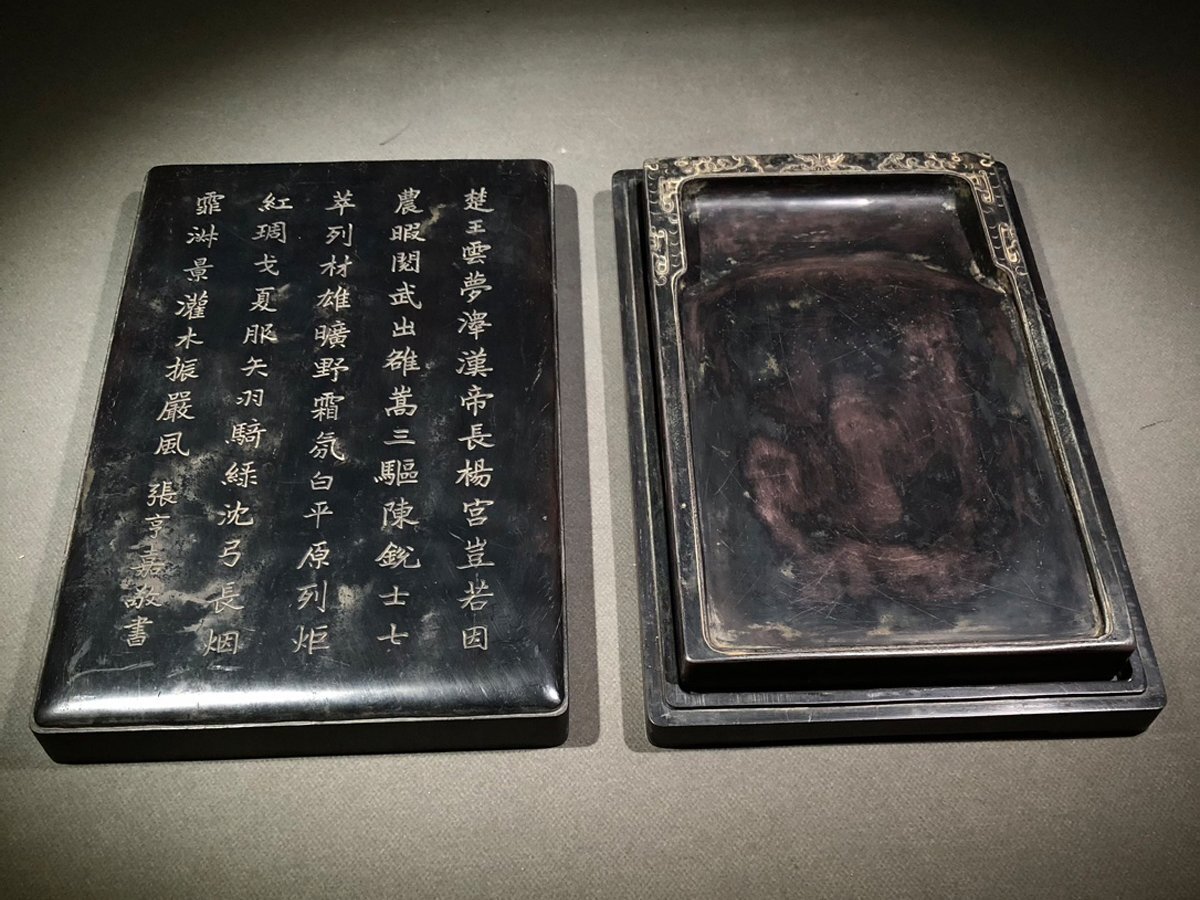 楚王雲夢澤漢帝長楊宮豈若因
農暇閱武出雒嵩三驅陳銳士七
萃列材雄曠野霜氛白平原列炬
紅琱戈夏服矢羽騎綠沈弓長烟
霏景灌木振嚴風 張亨嘉敬書